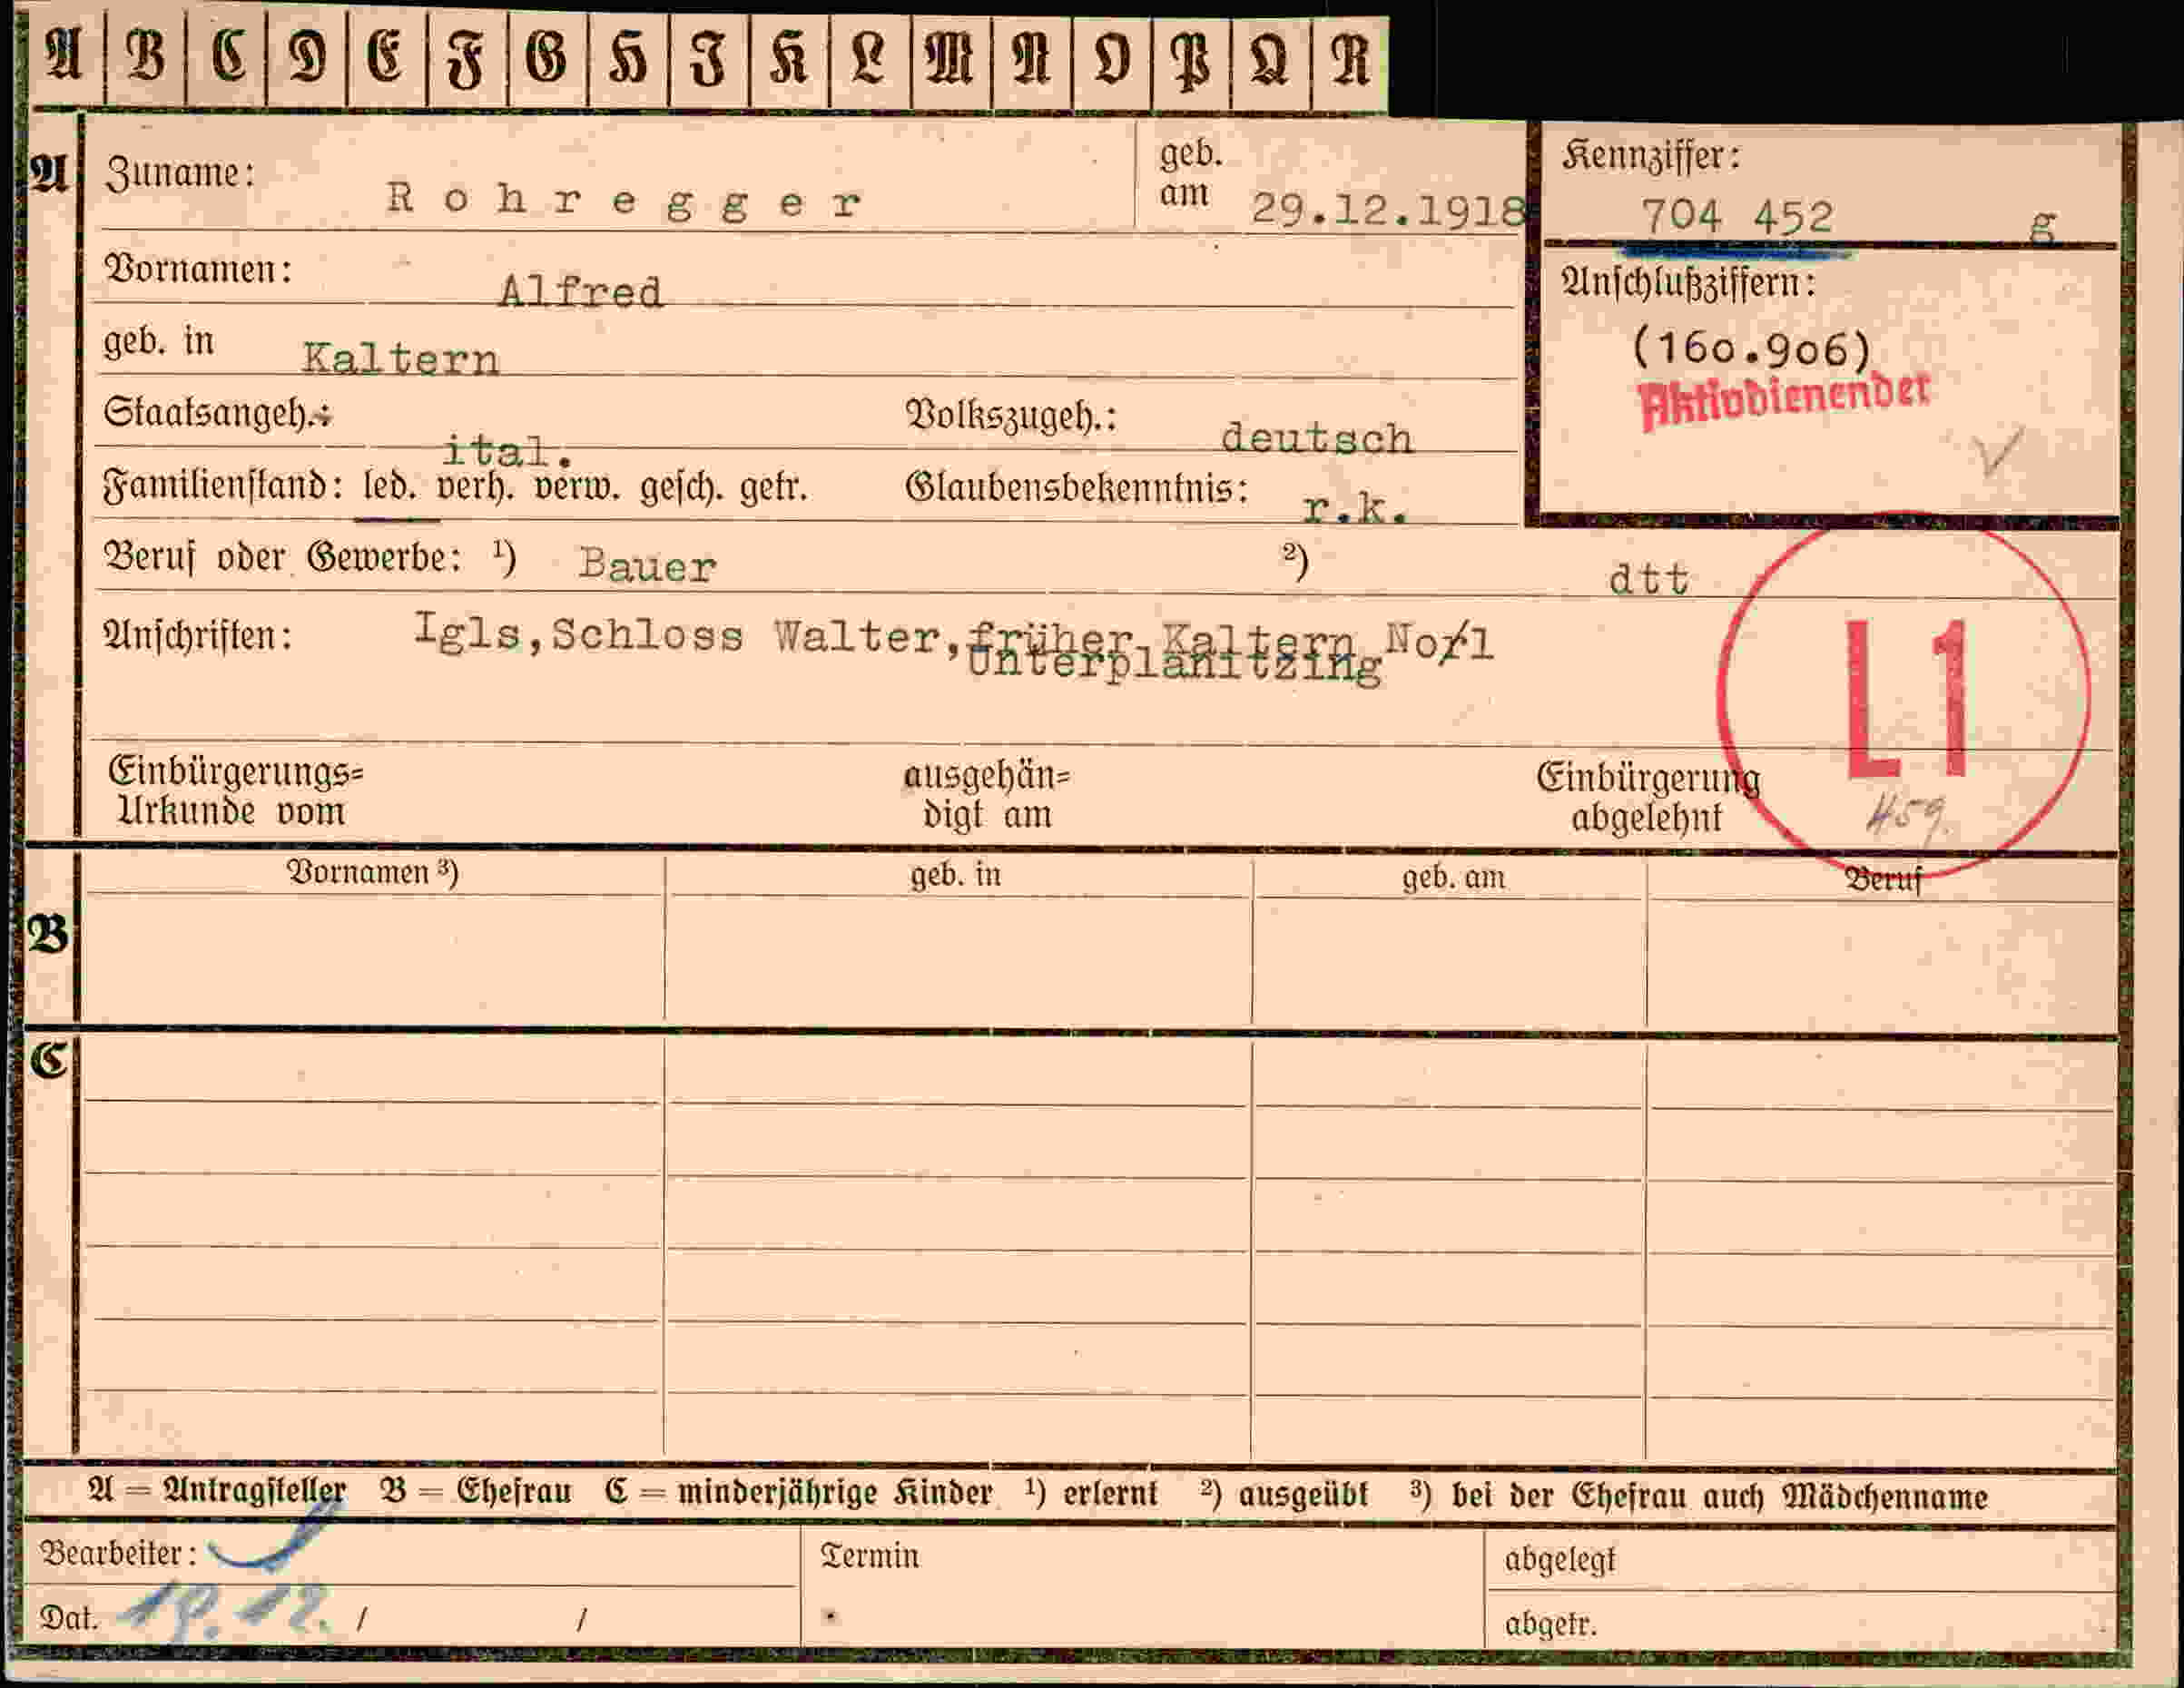 A B C D E F G H J K L M N O P Q R
A Zuname: Rohregger geb. am 29.12.1918
Kennziffer: 704 452 g
Vornamen: Alfred
Anschlußziffern:
(160.906)
Aktivdienender
geb. in Kaltern
Staatsangeh.: ital. Volkszugeh.: deutsch
Familienstand: led. verh. verw. gesch. getr. Glaubensbekenntnis: r.k.
Beruf oder Gewerbe: 1) Bauer 2) dtt
Anschriften: Igls, Schloss Walter, früher Kaltern No/1
Unterplanitzing
L1
459.
Einbürgerungs= Urkunde vom
ausgehän= digt am
Einbürgerung abgelehnt
B Vornamen 3) geb. in geb. am Beruf
C
A = Antragsteller B = Ehefrau C = minderjährige Kinder 1) erlernt 2) ausgeübt 3) bei der Ehefrau auch Mädchenname
Bearbeiter: Termin abgelegt
Dat. 12. / / abgetr.